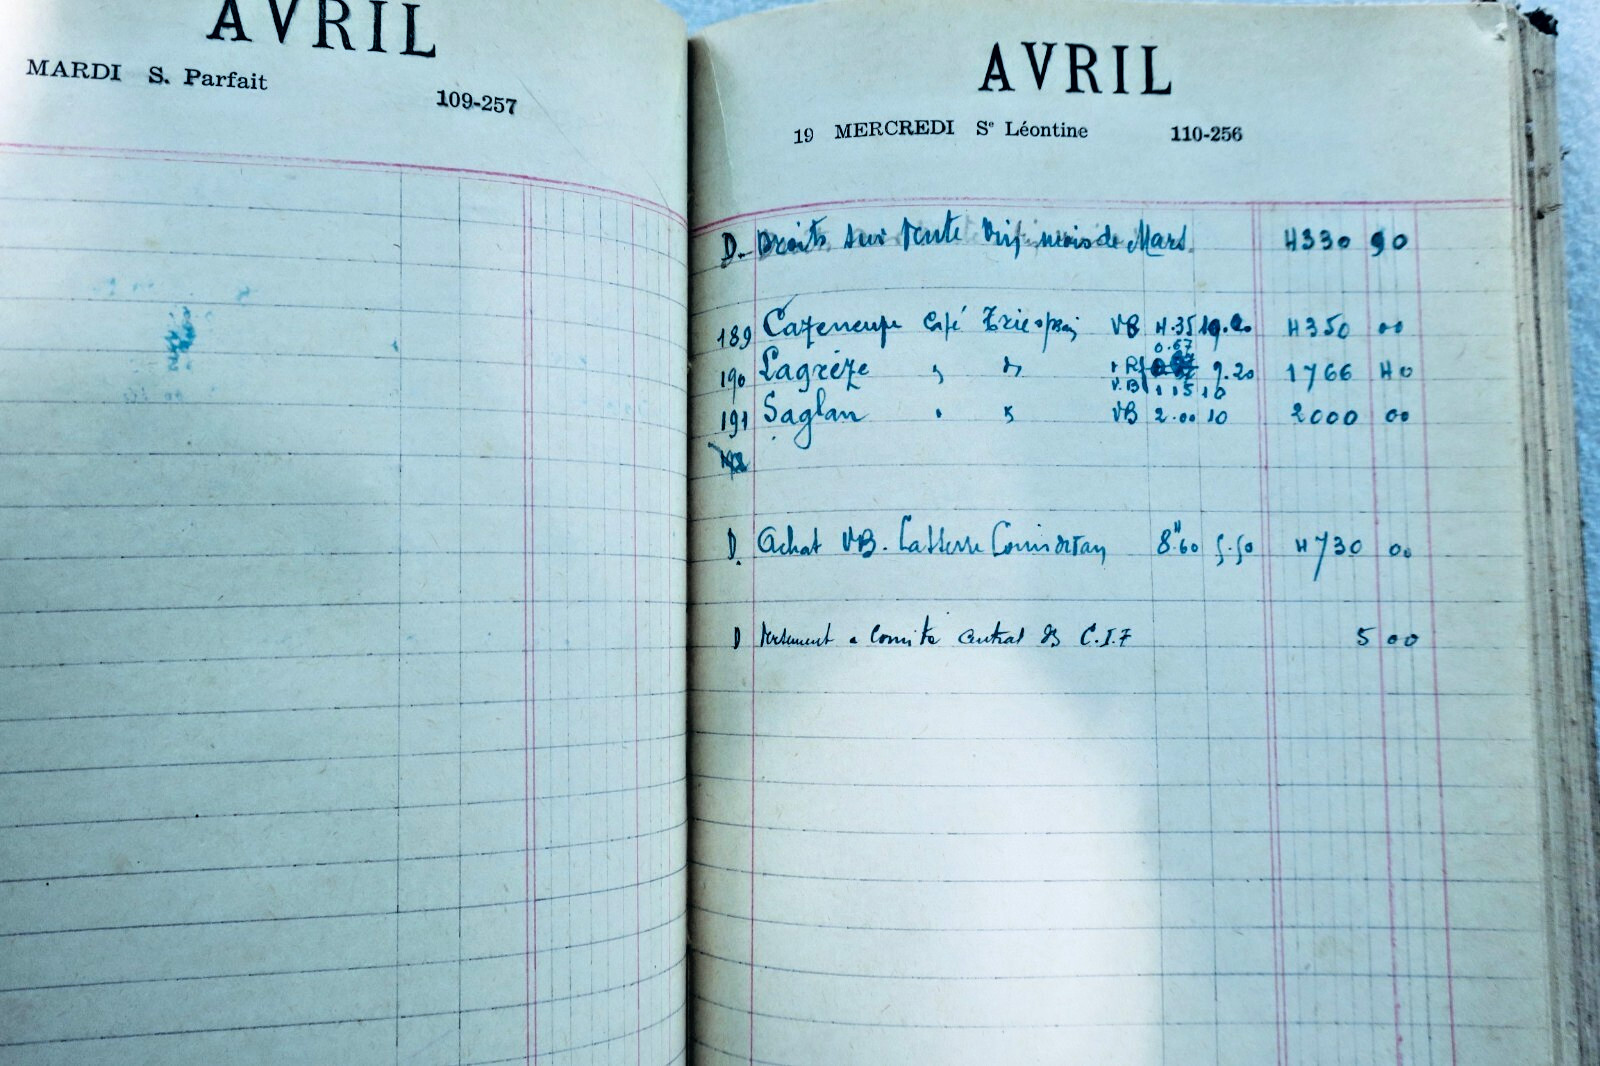 AVRIL
MARDI S. Parfait
109-257
AVRIL
19 MERCREDI Sᵉ Léontine 110-256
D. Droits sur vente mois de Mars 4330 90
189 Cazeneuve Café VB 4.35 10.00 4350 00
0.67
190 Lagrèze " " v R 9.20 1766 40
V.B 1 15 10
191 Saglan " " VB 2.00 10 2000 00
D. Achat VB. Lasserre 8.60 5.50 4730 00
D Versement a Comité central C.I.F 5 00